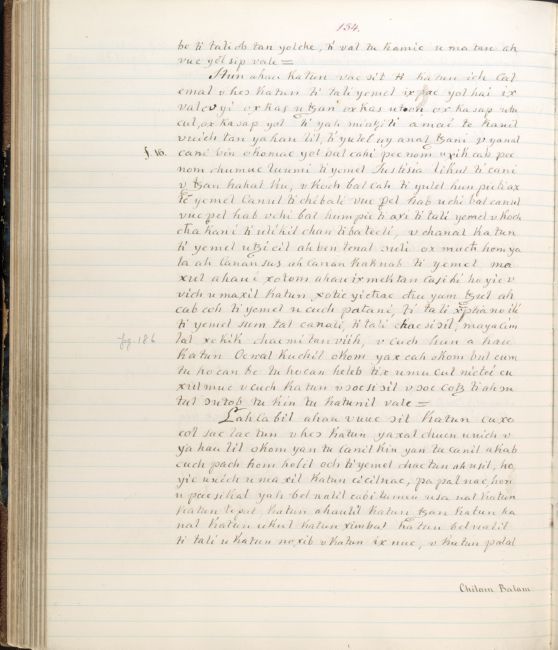 154.
be ti tali ob tan yolche, ti val tu kamic u ma tan ah
vuc yol sip vale =
Hun ahau Katun vac sit ti katun ich Cal
emal v hes Katun ti tali yemel ix pae yol hai ix
ox kas ox kas ox kasap utu
cul, ox kasap yol ti yah
vuich tan yakan til, ti yulel uy anal tzani v yanal
§ 16. cani bin okomuc yol bal cahi pec nom uxik cab pec
nom chumuc luumi ti yemel Justisia likul ti cani
v tzan hahal Ku, v koch bal cah ti yulel hun pieli ax
te yemel Canul ti chibali vuc pel hab uchi bal canul
vuc pel hab v chi bal hum pic ti axi ti tali yemel v koch
chakani ti ulikil chan tiba teeli, v chanal Katun
ti yemel utzicil ah ben tenal suli ox much hom ya
la ah Canan sus ah Canan kaknab ti yemel ma
xul ahaui xotom ahau ix mektan casi hi ho yic v
vich u maxil katun xotic yichac cha yum tzul ah
cab coh ti yemel u cuch patani, ti tali xptianoili
fg. 186 ti yemel sum tal canali, ti tali chac sisil, maya cim
lal xekik chacmitan viih, v cuch hun a hau
Katun Ocnal Kuchil okom yax cah okom bul cum
tu ho can be tu ho can heleb tix u mu cul nicteé cu
xul muc v cuch Katun v socsi sil v soc cotz ti ah su
tal sutob tu kin tu katunil vale =
Lah Ca bil ahau vuuc sit Katun cuxo
col sac lac tun v hes Katun yaxal chucu uuich v
ya hau lil okom yan tu canil kin yan tu canil akab
cuch pach hom hobil och ti yemel chac tun ah usil, ho
yic uuich u ma xil Katun cicilnac, pa pal nac, hon
u pucsikal yah bel nalil cabi tumen usa nal katun
katun lepel, katun ahaulil Katun tzan katun ka
nal Katun ukul Katun ximbal Katun bel nalil
ti tali u katun noxib v katun ix nuc, v Katun palal
Chilam Balam.